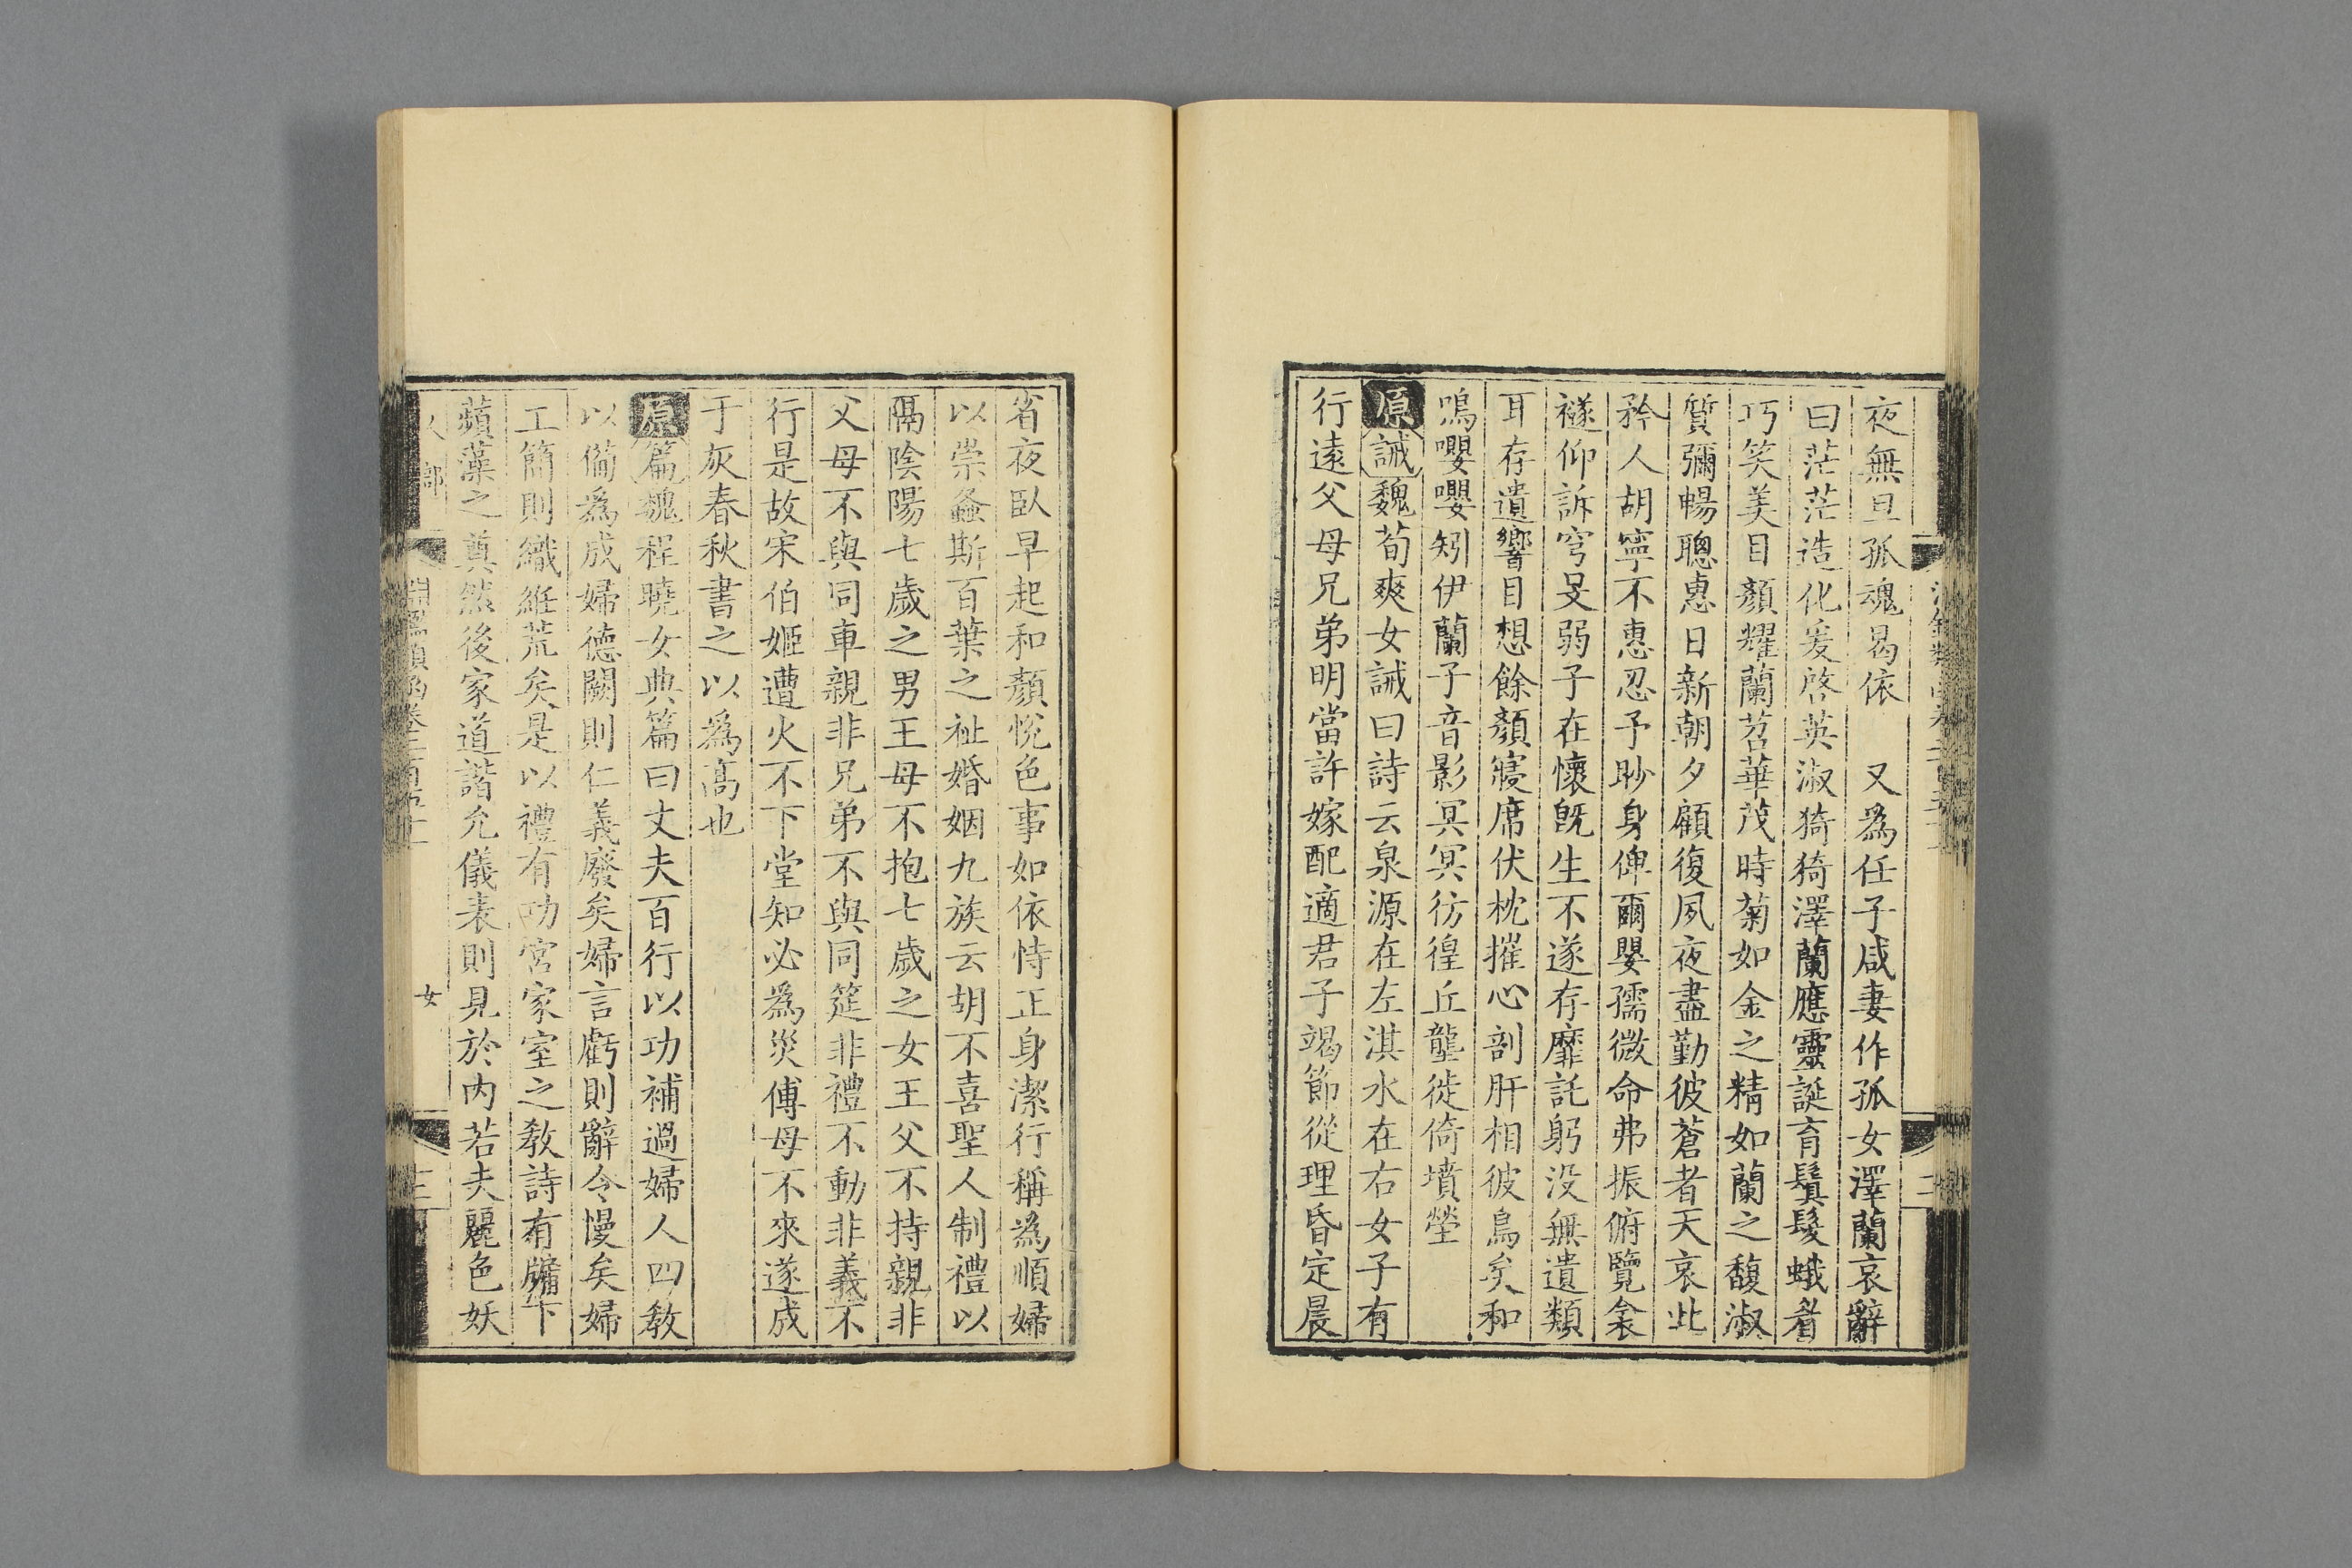 夜無旦孤魂曷依　又爲任子咸妻作孤女澤蘭哀辭
曰茫茫造化爰啓英淑猗猗澤蘭應靈誕育鬒髮蛾眉
巧笑美目顏耀蘭苕華茂時菊如金之精如蘭之馥淑
質彌暢聰惠日新朝夕顧復夙夜盡勤彼蒼者天哀此
矜人胡寧不惠忍予眇身俾爾嬰孺微命弗振俯覽衾
襚仰訴穹旻弱子在懷旣生不遂存靡託躬没無遺類
耳存遺響目想餘顏寢席伏枕摧心剖肝相彼鳥矣和
鳴嚶嚶矧伊蘭子音影冥冥彷徨丘壟徙倚墳塋
原誡魏荀爽女誡曰詩云泉源在左淇水在右女子有
行遠父母兄弟明當許嫁配適君子竭節從理昏定晨
省夜臥早起和顏悅色事如依恃正身潔行稱爲順婦
以崇螽斯百葉之祉婚姻九族云胡不喜聖人制禮以
隔陰陽七歲之男王母不抱七歲之女王父不持親非
父母不與同車親非兄弟不與同筵非禮不動非義不
行是故宋伯姬遭火不下堂知必爲災傅母不來遂成
于灰春秋書之以爲高也
原篇魏程曉女典篇曰丈夫百行以功補過婦人四敎
以備爲成婦德闕則仁義廢矣婦言虧則辭令慢矣婦
工簡則織維荒矣是以禮有功宮家室之敎詩有牖下
蘋藻之奠然後家道諧允儀表則見於内若夫麗色妖
人部
淵鑑類函卷二百五十
女
三